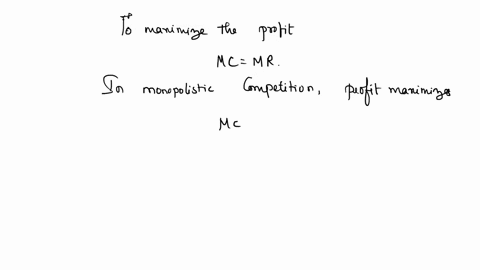 To maximize the profit
MC = MR.
In monopolistic Competition, profit maximizes
MC